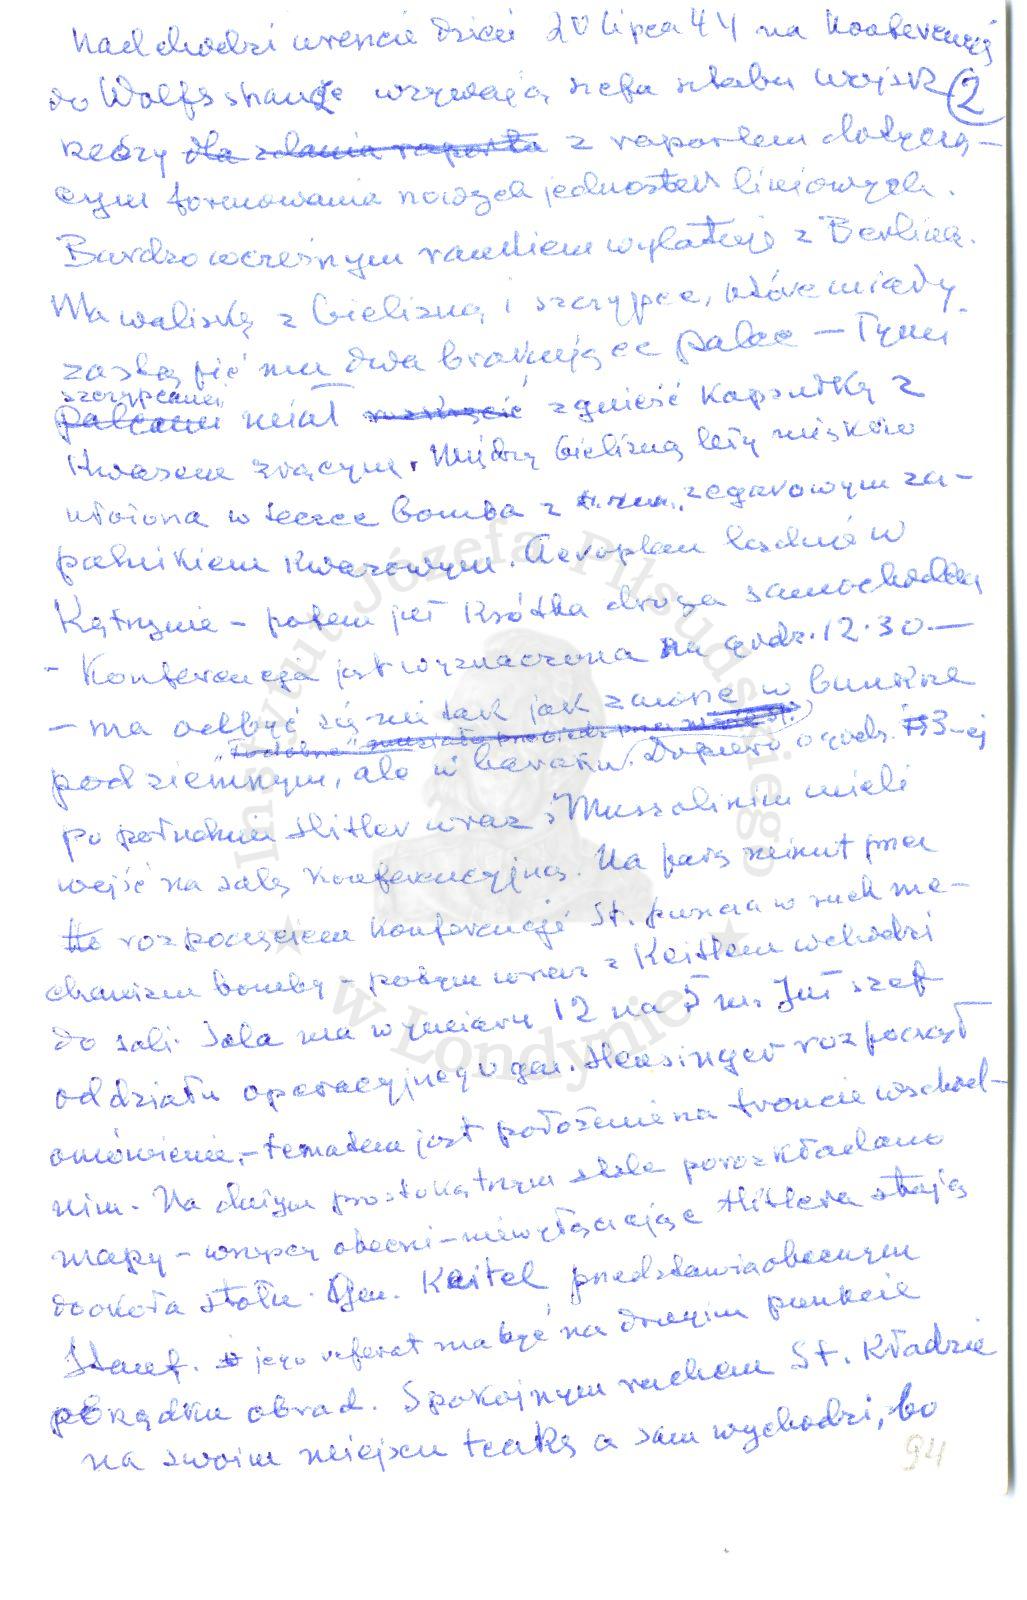 Nadchodzi wreszcie dzień 20 lipca 44 na Konferencję
do Wolfsshanze wzywają szefa sztabu wojsk
②
rezery dla zdania raportu z raportem dotyczą-
cym formowania nowych jednostek liniowych.
Bardzo wczesnym rankiem wylatuje z Berlina.
Ma walizkę z bielizną i szczypce, które miały
zastąpić mu dwa brakujące palce — Tymi
szczypcami
palcami miał zgnieść kapsułkę z
kwasem żrącym. Między bielizną leży
ułożona w teczce bomba z t. zw. zegarowym za-
palnikiem kwasowym. Aeroplan ląduje w
Kętrzynie – potem już krótka droga samochodem
- Konferencja jest wyznaczona na godz. 12.30 —
— ma odbyć się nie tak jak zawsze w bunkrze
podziemnym, ale w baraku. Dopiero o godz. 3-ej
po południu Hitler wraz z Mussolinim mieli
wejść na salę konferencyjną. Na parę minut przed
rozpoczęciem Konferencji St. puszcza w ruch me-
chanizm bomby – potym wraz z Keitlem wchodzi
do sali. Sala ma wymiary 12 na 5 m. Już szef
oddziału operacyjnego gen. Heusinger rozpoczął
omówienie, – tematem jest położenie na froncie wschod-
nim. Na dużym prostokątnym stole porozkładano
mapy – wszyscy obecni – niewyłączając Hitlera stają
dookoła stołu. Gen. Keitel przedstawia obecnym
Stauf. jego referat ma być na drugim punkcie
porządku obrad. Spokojnym ruchem St. kładzie
na swoim miejscu teczkę a sam wychodzi, bo
94
Instytut Józefa Piłsudskiego
w Londynie